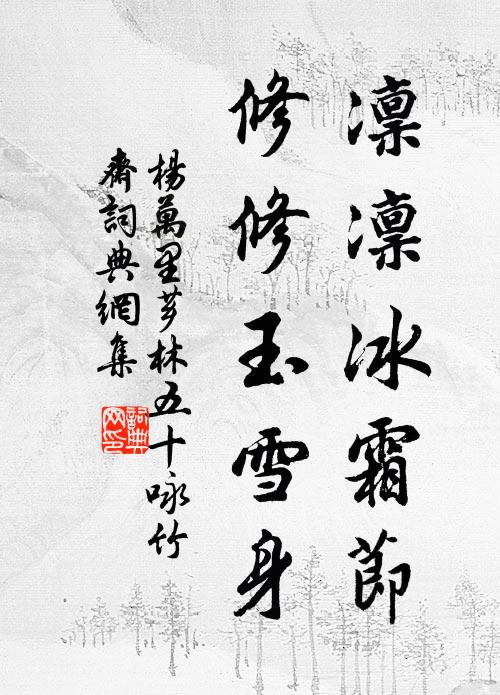 凜凜冰霜節
修修玉雪身
楊萬里芗林五十咏竹
齋詞典網集
詞典
网印